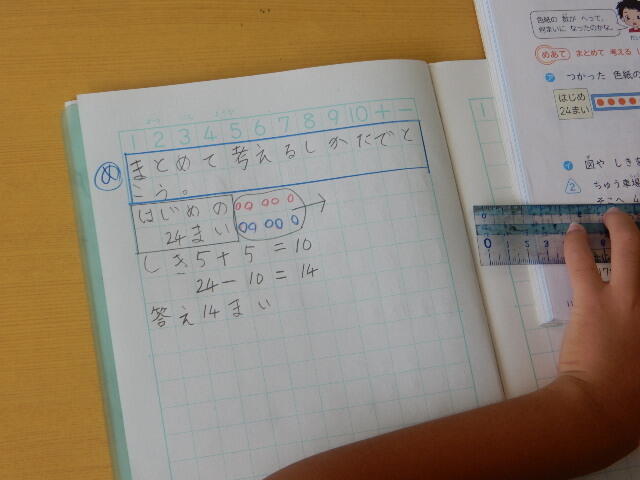 1 2 3 4 5 6 7 8 9 10 + −
め
まとめて考えるしかたでと
こう。
はじめの
24まい
しき 5 + 5 = 10
24 − 10 = 14
答え14まい
色紙の 数が へって、
何まいに なったのかな。
めあて まとめて 考える
ア つかった 色紙の
はじめ
24まい
イ 図や しきを
2 ちゅう車場
そこへ
0 1
1